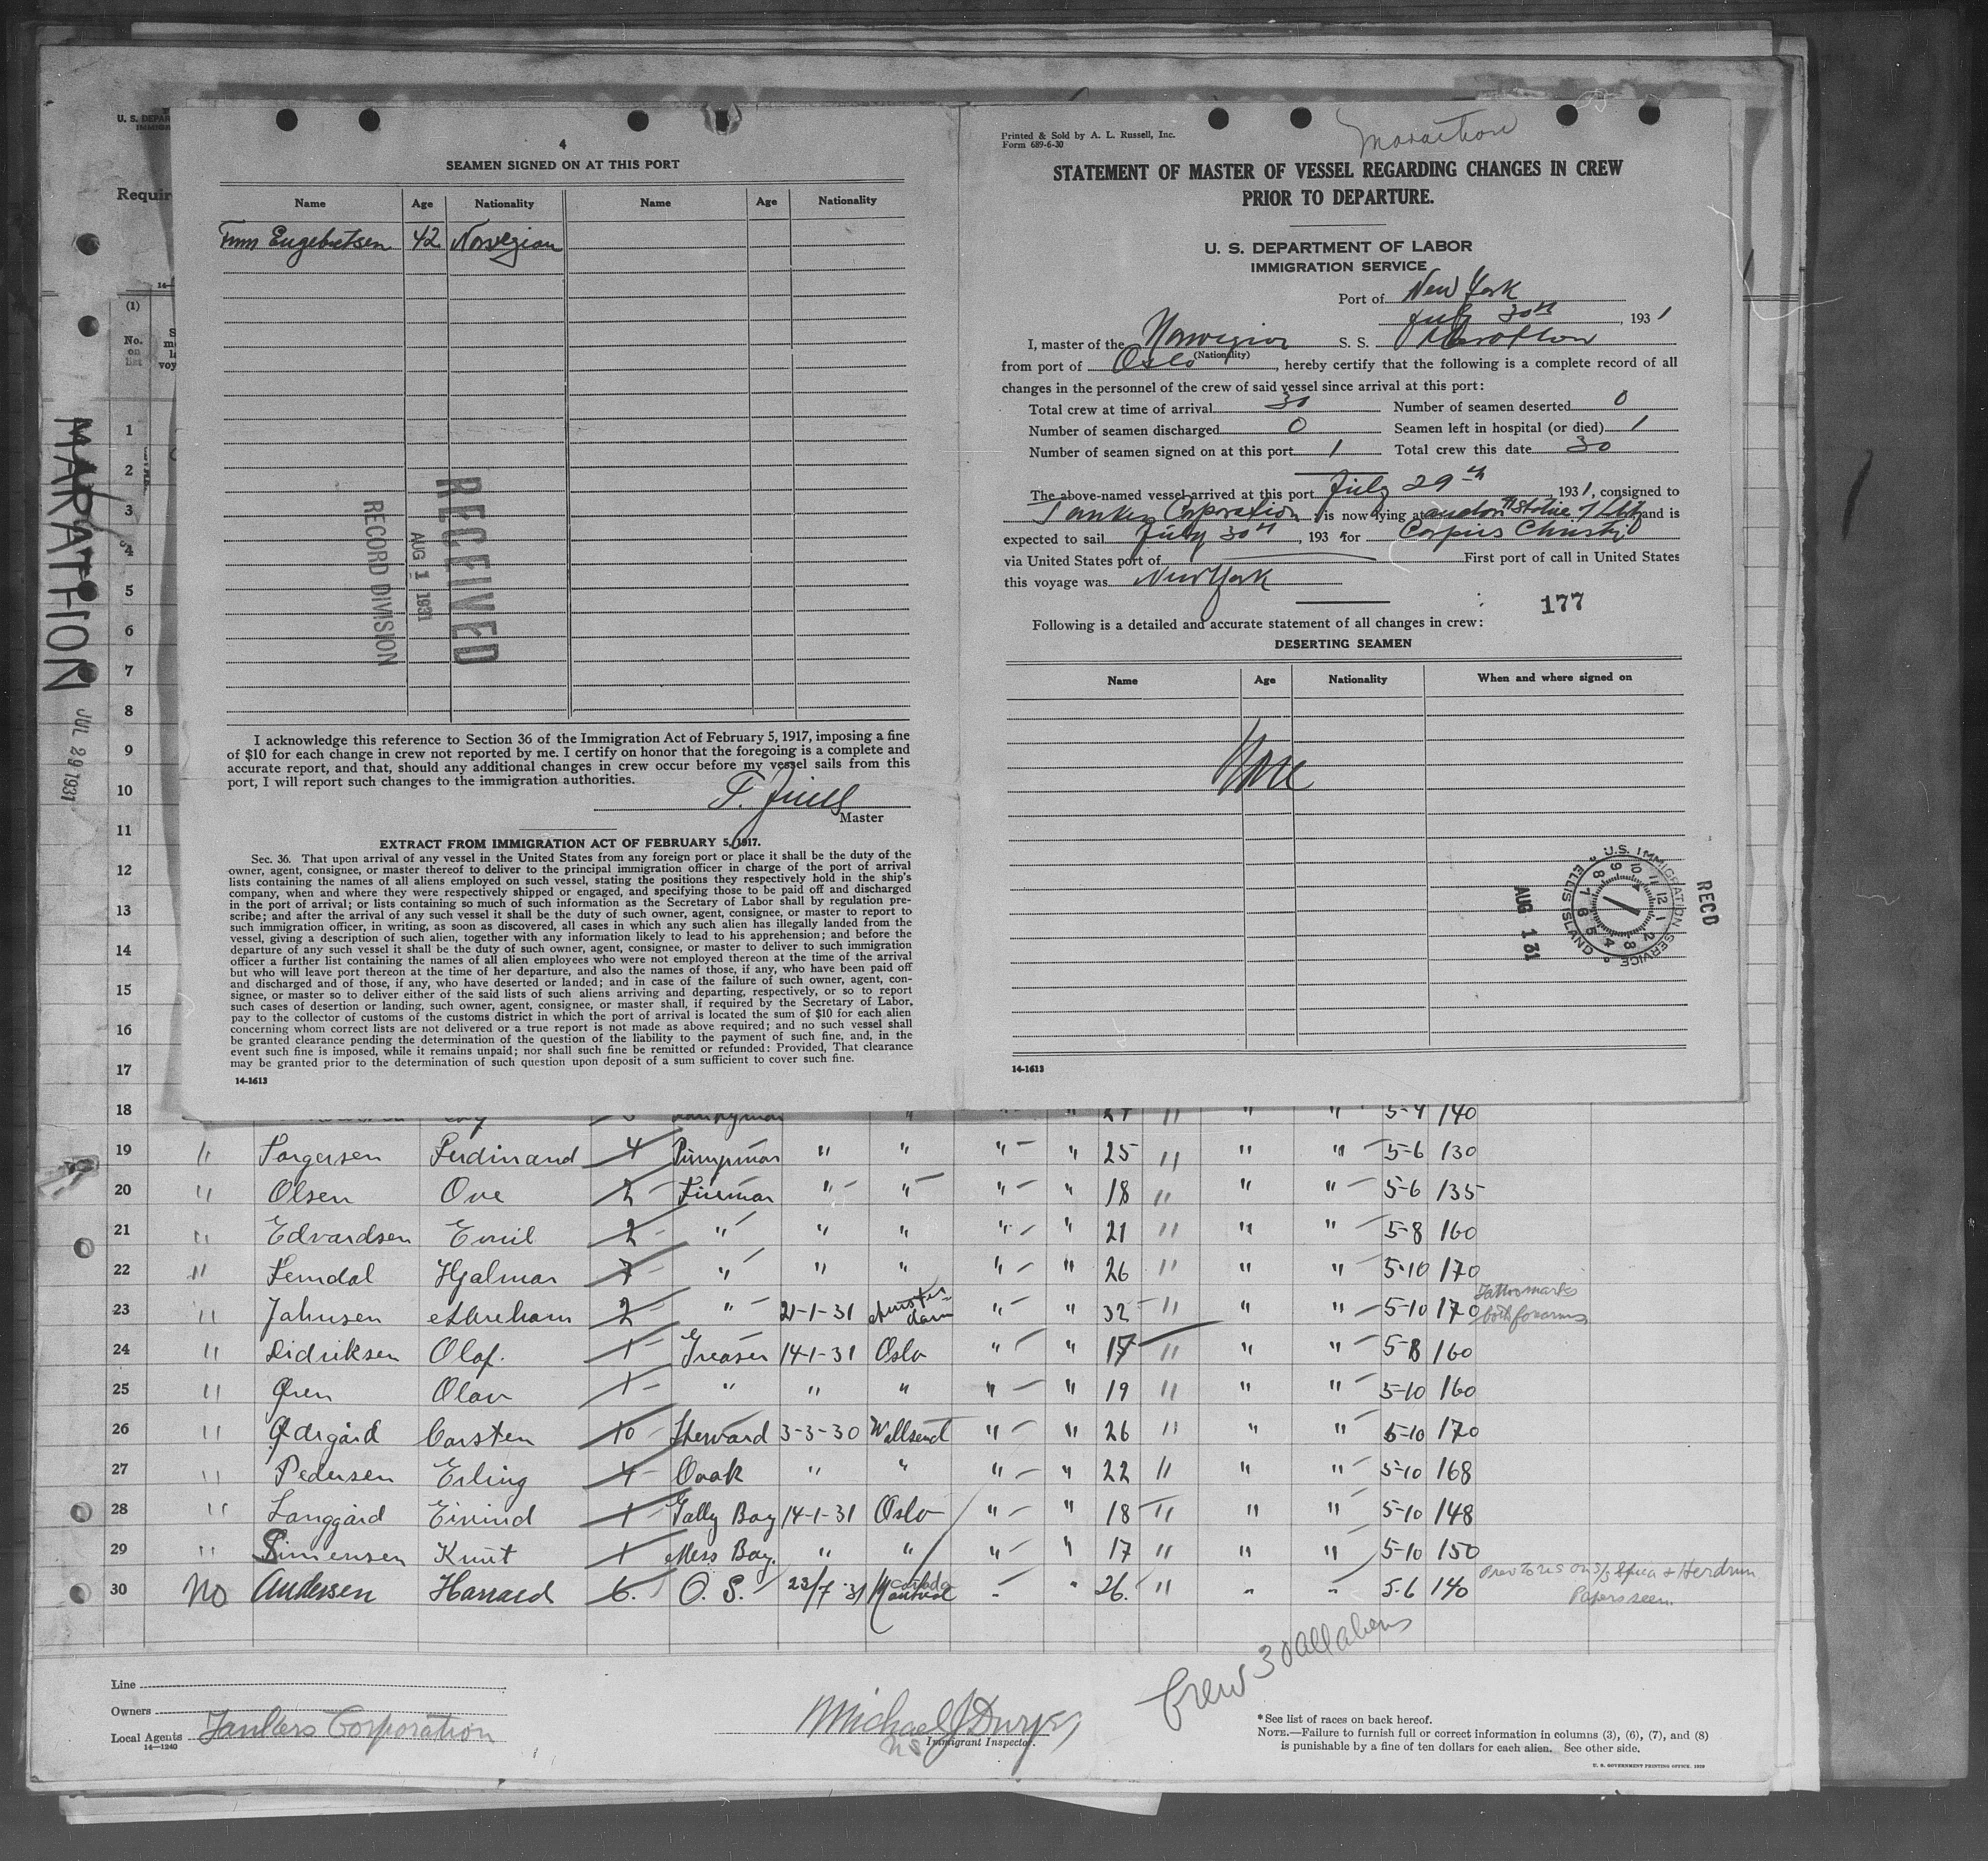 4
SEAMEN SIGNED ON AT THIS PORT
Name Age Nationality Name Age Nationality
42 Norwegian
RECEIVED
AUG 1 1931
RECORD DIVISION
I acknowledge this reference to Section 36 of the Immigration Act of February 5, 1917, imposing a fine
of $10 for each change in crew not reported by me. I certify on honor that the foregoing is a complete and
accurate report, and that, should any additional changes in crew occur before my vessel sails from this
port, I will report such changes to the immigration authorities.
Master
EXTRACT FROM IMMIGRATION ACT OF FEBRUARY 5, 1917.
Sec. 36. That upon arrival of any vessel in the United States from any foreign port or place it shall be the duty of the
owner, agent, consignee, or master thereof to deliver to the principal immigration officer in charge of the port of arrival
lists containing the names of all aliens employed on such vessel, stating the positions they respectively hold in the ship's
company, when and where they were respectively shipped or engaged, and specifying those to be paid off and discharged
in the port of arrival; or lists containing so much of such information as the Secretary of Labor shall by regulation pre-
scribe; and after the arrival of any such vessel it shall be the duty of such owner, agent, consignee, or master to report to
such immigration officer, in writing, as soon as discovered, all cases in which any such alien has illegally landed from the
vessel, giving a description of such alien, together with any information likely to lead to his apprehension; and before the
departure of any such vessel it shall be the duty of such owner, agent, consignee, or master to deliver to such immigration
officer a further list containing the names of all alien employees who were not employed thereon at the time of the arrival
but who will leave port thereon at the time of her departure, and also the names of those, if any, who have been paid off
and discharged and of those, if any, who have deserted or landed; and in case of the failure of such owner, agent, con-
signee, or master so to deliver either of the said lists of such aliens arriving and departing, respectively, or so to report
such cases of desertion or landing, such owner, agent, consignee, or master shall, if required by the Secretary of Labor,
pay to the collector of customs of the customs district in which the port of arrival is located the sum of $10 for each alien
concerning whom correct lists are not delivered or a true report is not made as above required; and no such vessel shall
be granted clearance pending the determination of the question of the liability to the payment of such fine, and, in the
event such fine is imposed, while it remains unpaid; nor shall such fine be remitted or refunded: Provided, That clearance
may be granted prior to the determination of such question upon deposit of a sum sufficient to cover such fine.
14-1613
Printed & Sold by A. L. Russell, Inc.
Form 689-6-30
Marathon
STATEMENT OF MASTER OF VESSEL REGARDING CHANGES IN CREW
PRIOR TO DEPARTURE.
U. S. DEPARTMENT OF LABOR
IMMIGRATION SERVICE
Port of New York
July 30th, 1931
I, master of the Norwegian S. S. Marathon
(Nationality)
from port of Oslo, hereby certify that the following is a complete record of all
changes in the personnel of the crew of said vessel since arrival at this port:
Total crew at time of arrival 30 Number of seamen deserted 0
Number of seamen discharged 0 Seamen left in hospital (or died) 1
Number of seamen signed on at this port 1 Total crew this date 30
The above-named vessel arrived at this port July 29th, 1931, consigned to
Tankers Corporation, is now lying at and is
expected to sail July 30th, 193 for Corpus Christi
via United States port of First port of call in United States
this voyage was New York
177
Following is a detailed and accurate statement of all changes in crew:
DESERTING SEAMEN
Name Age Nationality When and where signed on
None
U.S. IMMIGRATION SERVICE ELLIS ISLAND
RECD
AUG 1 31
14-1613
MARATHON JUL 29 1931
U. S. DEPAR
Requir
(1)
No. on list
1
2
3
4
5
6
7
8
9
10
11
12
13
14
15
16
17
18 " " " 5-4 140
19 " Torgersen Ferdinand 4 Pumpman " " " " 25 " " " 5-6 130
20 " Olsen Ove 2 Fireman " " " " 18 " " " 5-6 135
21 " Edvardsen Emil 2 " " " " " 21 " " " 5-8 160
22 " Hjalmar 7 " " " " " 26 " " " 5-10 170
23 " Jahnsen Abreham 2 " 21-1-31 Amsterdam " " 32 " " " 5-10 170 Tattoo marks both forearms
24 " Didriksen Olaf. 1 Greaser 14-1-31 Oslo " " 17 " " " 5-8 160
25 " Øren Olav 1 " " " " " 19 " " " 5-10 160
26 " Ødegård Carsten 10 Steward 3-3-30 Wallsend " " 26 " " " 5-10 170
27 " Pedersen Erling 4 Cook " " " " 22 " " " 5-10 168
28 " Langgård Eivind 1 Gally Boy 14-1-31 Oslo " " 18 " " " 5-10 148
29 " Simensen Knut 1 Mess Boy. " " " " 17 " " " 5-10 150
30 No Andersen Harrald 6. O. S. 23/7-31 Montreal Canada " " 26. " " " 5-6 140 Papers seen.
Crew 30 all aliens
Line
Owners
Local Agents Tankers Corporation
14-1240
Michael J Dwyer
Immigrant Inspector.
* See list of races on back hereof.
NOTE.—Failure to furnish full or correct information in columns (3), (6), (7), and (8)
is punishable by a fine of ten dollars for each alien. See other side.
U. S. GOVERNMENT PRINTING OFFICE. 1929